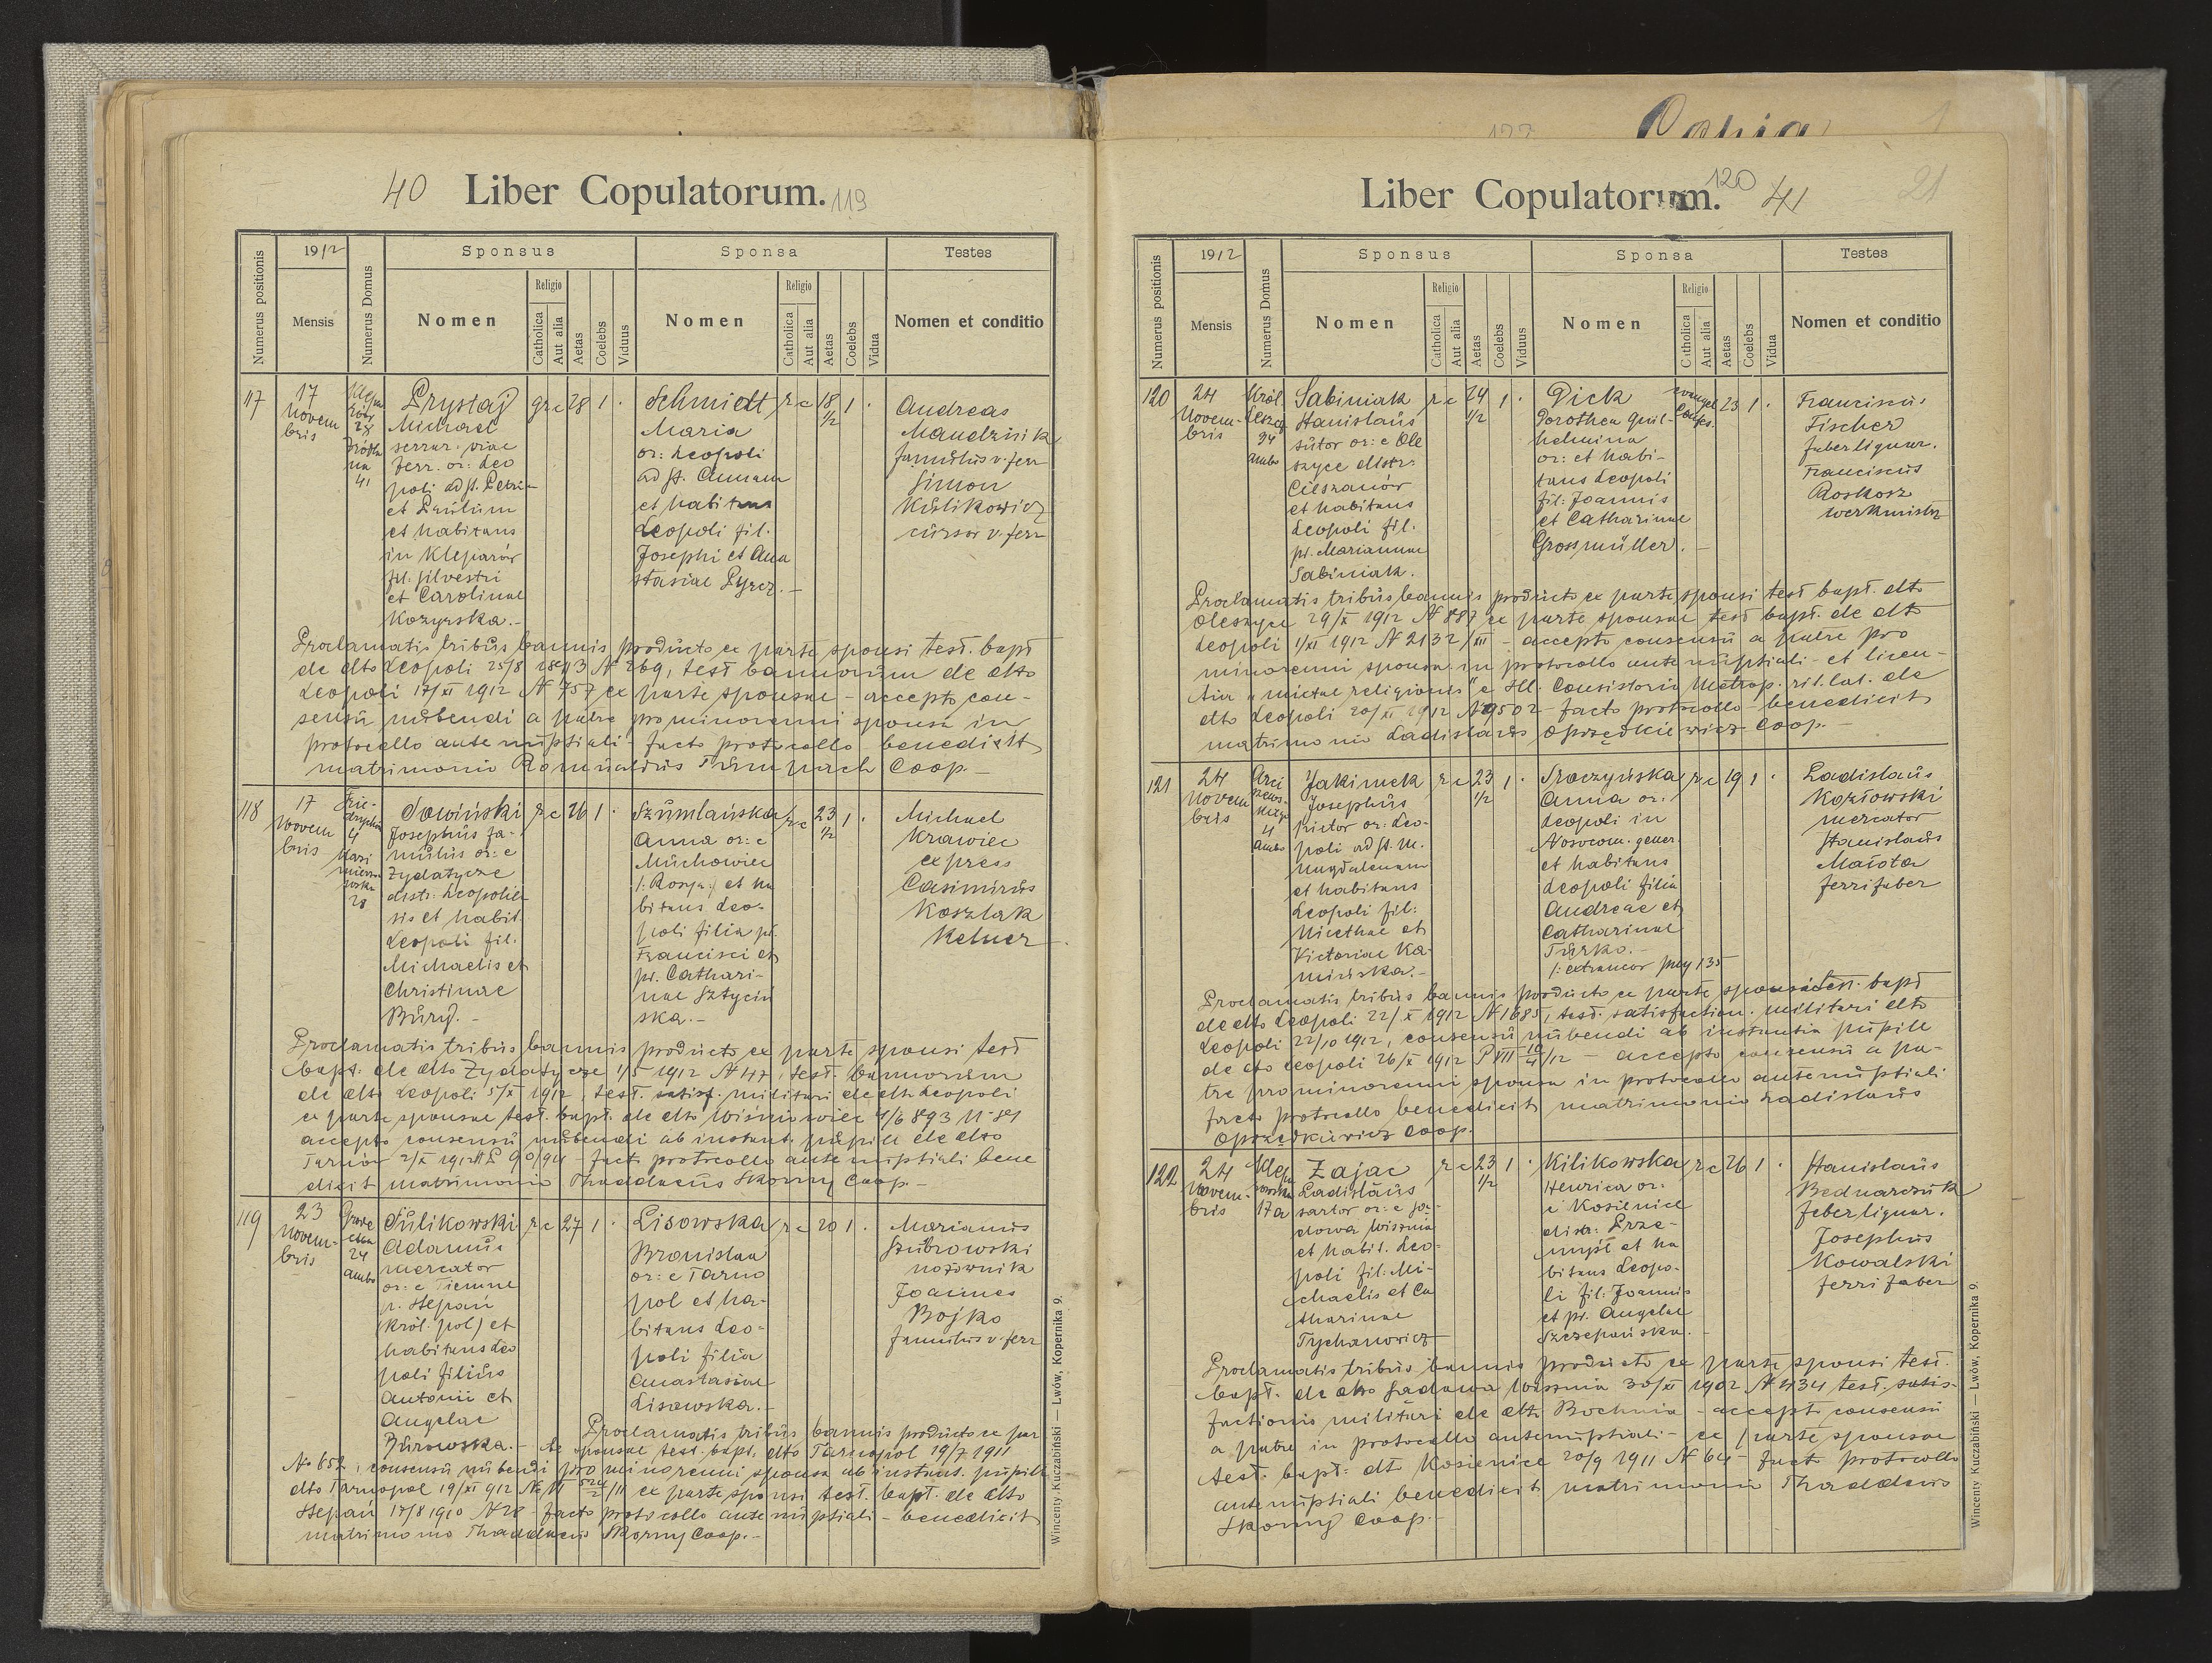 40 Liber Copulatorum. 119
Numerus positionis
1912
Mensis
Numerus Domus
Sponsus
Nomen
Religio
Catholica
Aut alia
Aetas
Coelebs
Viduus
Sponsa
Nomen
Religio
Catholica
Aut alia
Aetas
Coelebs
Vidua
Testes
Nomen et conditio
117
17
Novem
bris
28
41
Prystaj
Michael
serrar. viae
ferr. or: Leo
poli ad st. Petrum
et Paulum
et habitans
in Kleparów
fil. Silvestri
et Carolinae
Kozyrska.-
grc 28 1 .
Schmidt
Maria
or: Leopoli
ad st. Annam
et habitans
Leopoli fil.
Josephi et Ana
stasiae Pyrcz.-
rc 18 1/2 1 .
Andreas
Mandziuk
famulus v. ferr
Simon
Kulikowicz
cursor v. ferr
Proclamatis tribus bannis, producto ex parte sponsi test. bapt
de dto Leopoli 25/8 N 269, test bannorum de dto
Leopoli 17/XI 1912 N 757 ex parte sponsae - accepto con-
sensu nubendi a patre pro minorenni sponsa in
protocollo ante nuptiali - facto protocollo benedixit
matrimonio Romualdus Coop.-
118
17
Novem
bris
4
28
Sowiński
Josephus fa-
mulus or: e
Zydatycze
distr: Leopolien
sis et habit.
Leopoli fil.
Michaelis et
Christinae
Buryj.-
rc 26 1 .
Szumlańska
Anna or: e
Muchowiec
/: Rosya :/ et ha
bitans Leo-
poli filia pt.
Francisci et
pt. Cathari-
nae Sztyciń
ska.-
rc 23 1/2 1 .
Michael
Krawiec
express
Casimirus
Koszlak
Kelner
Proclamatis tribus bannis producto ex parte sponsi test
bapt: de dto Zydatycze 1/5 1912 N 47, test. bannorum
de dto Leopoli 5/X 1912, test. satisf. militari de dto Leopoli
ex parte sponsae test. bapt. de dto Wiśniowiec 4/6 893 N 81
accepto consensu nubendi ab instant. pupill de dto
Tarnów 2/X 1912 90/94 - facto protocollo ante nuptiali bene
dicit matrimonio Thaddaeus Skorny Coop.-
119
23
Novem-
bris
24
ambo
Sulikowski
Adamus
mercator
or: e Tiemne
p. Stepań
(Król. pol) et
habitans Leo
poli filius
Antonii et
Angelae
Burowska.-
rc 27 1 .
Lisowska
Bronislaa
or: e Tarno
pol et ha-
bitans Leo-
poli filia
Anastasiae
Lisowska.-
rc 20 1 .
Marianus
Szubrowski
nożownik
Joannes
Bojko
famulus v. ferr
Proclamatis tribus bannis producto ex par
te sponsae test. bapt. dto Tarnopol 19/7 1911
No 652, consensu nubendi pro minorenni sponsa ab instant. pupill
dto Tarnopol 19/XI 912 ex parte sponsi test. bapt. de dto
Stepań 17/8 1910 N 28 - facto protocollo ante nuptiali - benedicit
matrimonio Thaddaeus Skorny Coop.-
Wincenty Kuczabiński — Lwów, Kopernika 9.
Liber Copulatorum. 120 41
21
Numerus positionis
1912
Mensis
Numerus Domus
Sponsus
Nomen
Religio
Catholica
Aut alia
Aetas
Coelebs
Viduus
Sponsa
Nomen
Religio
Catholica
Aut alia
Aetas
Coelebs
Vidua
Testes
Nomen et conditio
120
24
Novem-
bris
Król
ambo
Sabiniak
Stanislaus
sutor or: e Ole
szyce distr:
Cieszanów
et habitans
Leopoli fil.
pt. Mariannae
Sabiniak.
rc 24 1/2 1 .
Dick
Dorothea Guil-
helmina
or: et habi-
tans Leopoli
fil: Joannis
et Catharinae
Grossmüller.-
evangel
Confes.
23 1 .
Franciscus
Fischer
faber lignar.
Franciscus
Roskosz
werkmistrz
Proclamatis tribus bannis producto ex parte sponsi test bapt. dto
Oleszyce 29/X 1912 N 887 ex parte sponsae test bapt. de dto
Leopoli 1/XI 1912 N 2132/XII - accepto consensu a patre pro
minorenni sponsa in protocollo ante nuptiali - et licen-
tia "mixtae religionis" e Ill. Consistorio Metrop. rit. lat. de
dto Leopoli 20/XI 1912 N 9502 - facto protocollo - benedicit
matrimonio Ladislaus Oprzędkiewicz Coop.-
121
24
Novem
bris
4
ambo
Jakimek
Josephus
pictor or: Leo-
poli ad st. M.
Magdalenam
et habitans
Leopoli fil:
Nicethae et
Victoriae Ka
mińska.-
rc 23 1/2 1 .
Sroczyńska
Anna or:
Leopoli in
Nosocom. gener.
et habitans
Leopoli filia
Andreae et
Catharinae
Turko.-
/: extraneor pag 135
rc 19 1 .
Ladislaus
Kozłowski
mercator
Stanislaus
Małota
ferrifaber
Proclamatis tribus bannis producto ex parte sponsi test. bapt
de dto Leopoli 22/X 1912 N 1685, test. satisfaction. militari dto
Leopoli 22/10 1912, consensu nubendi ab instantia pupill
de dto Leopoli 26/X 1912 P VIII - accepto consensu a pa-
tre pro minorenni sponsa in protocollo ante nuptiali
facto protocollo benedicit matrimonio Ladislaus
Oprzędkiewicz Coop.
122
24
Novem-
bris
17a
Zajac
Ladislaus
sartor or: e Są-
dowa Wisznia
et habit. Leo-
poli fil: Mi-
chaelis et Ca
tharinae
Trychanowicz
rc 23 1/2 1 .
Kilikowska
Henrica or:
e Kosienice
distr: Prze-
myśl et ha
bitans Leopo-
li fil: Joannis
et pt. Angelae
Szczepańska.-
rc 26 1 .
Stanislaus
Bednarczuk
faber lignar.
Josephus
Kowalski
ferrifaber
Proclamatis tribus bannis producto ex parte sponsi test.
bapt. de dto Sadowa Wisznia 30/XI 1902 N 434 test. satis-
factionis militari de dto Bochnia - accepto consensu
a patre in protocollo antenuptiali - ex parte sponsae
test. bapt: dto Kosienice 20/9 1911 N 64 - facto protocollo
antenuptiali benedicit matrimonio Thaddaeus
Skorny Coop.-
Wincenty Kuczabiński — Lwów, Kopernika 9.